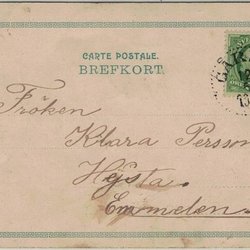 CARTE POSTALE.
BREFKORT.
Fröken
Klara Persson
Hysta
Emmelen